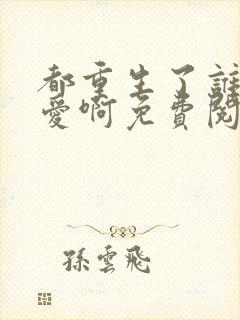 都重生了誰
愛啊免費閱
孫雲飛